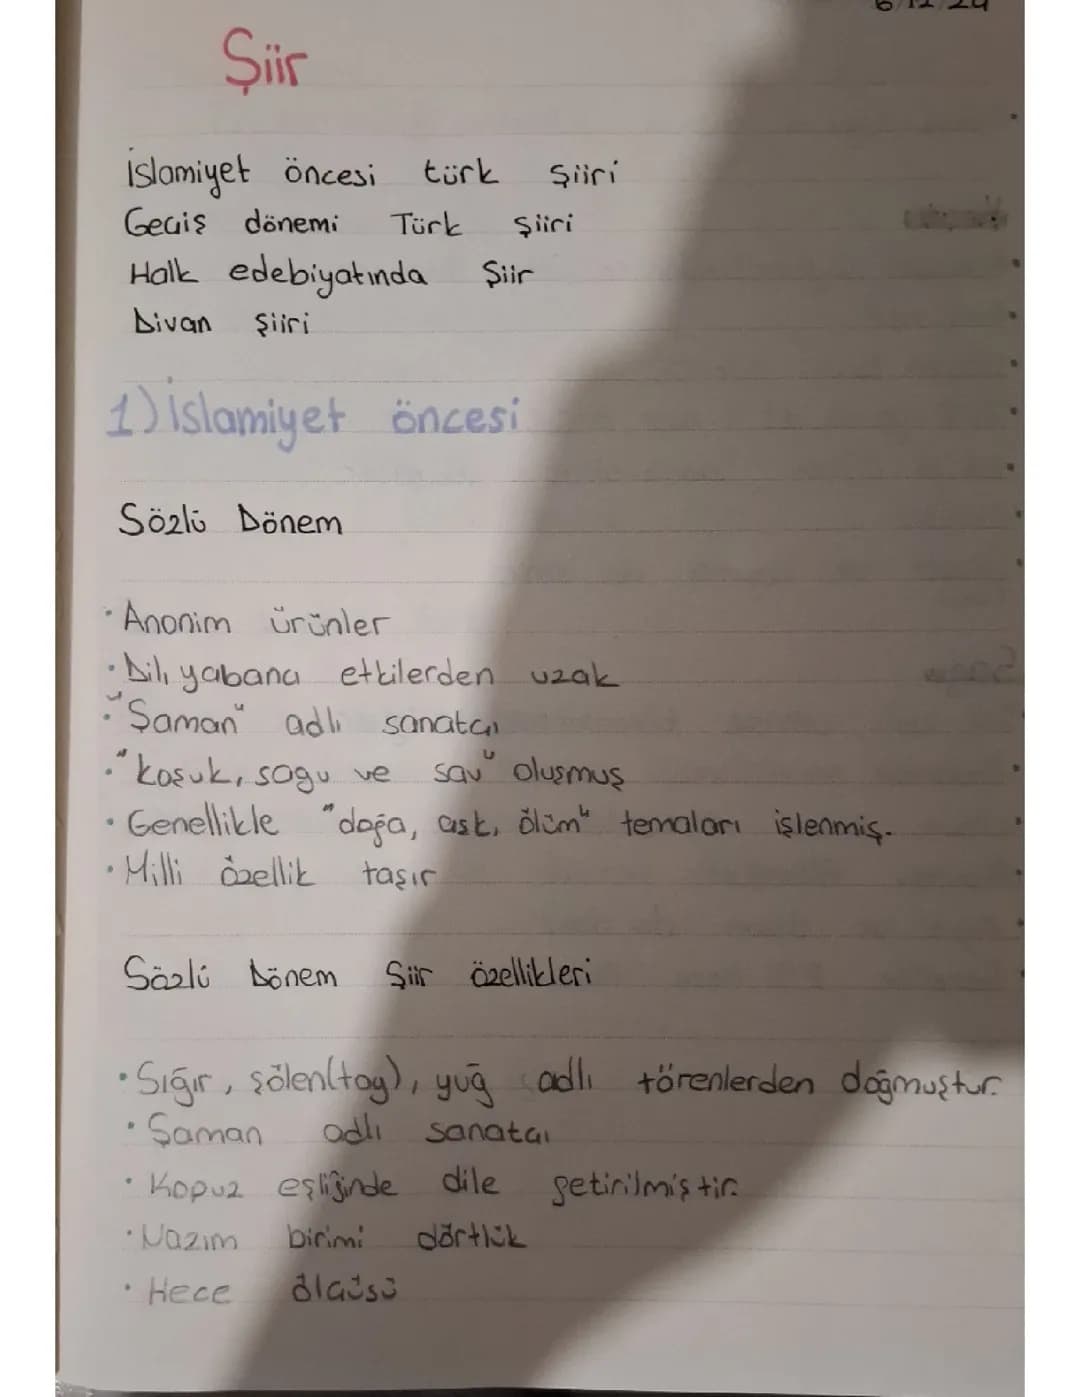 6/12/24
Şiir
İslamiyet öncesi türk şiiri
Geçiş dönemi Türk şiiri
Halk edebiyatında Şiir
Divan Şiiri
1) İslamiyet öncesi
Sözlü Dönem
• Anonim ürünler
• Dili yabancı etkilerden uzak
• "Şaman" adlı sanatçı
• "koşuk, sagu ve sav" oluşmuş
• Genellikle "doğa, aşk, ölüm" temaları işlenmiş.
• Milli özellik taşır
Sözlü Dönem Şiir özellikleri
• Sığır, şölen(toy), yuğ adlı törenlerden doğmuştur.
• Şaman adlı sanatçı
• Kopuz eşliğinde dile getirilmiştir.
• Nazım birimi dörtlük
• Hece ölçüsü